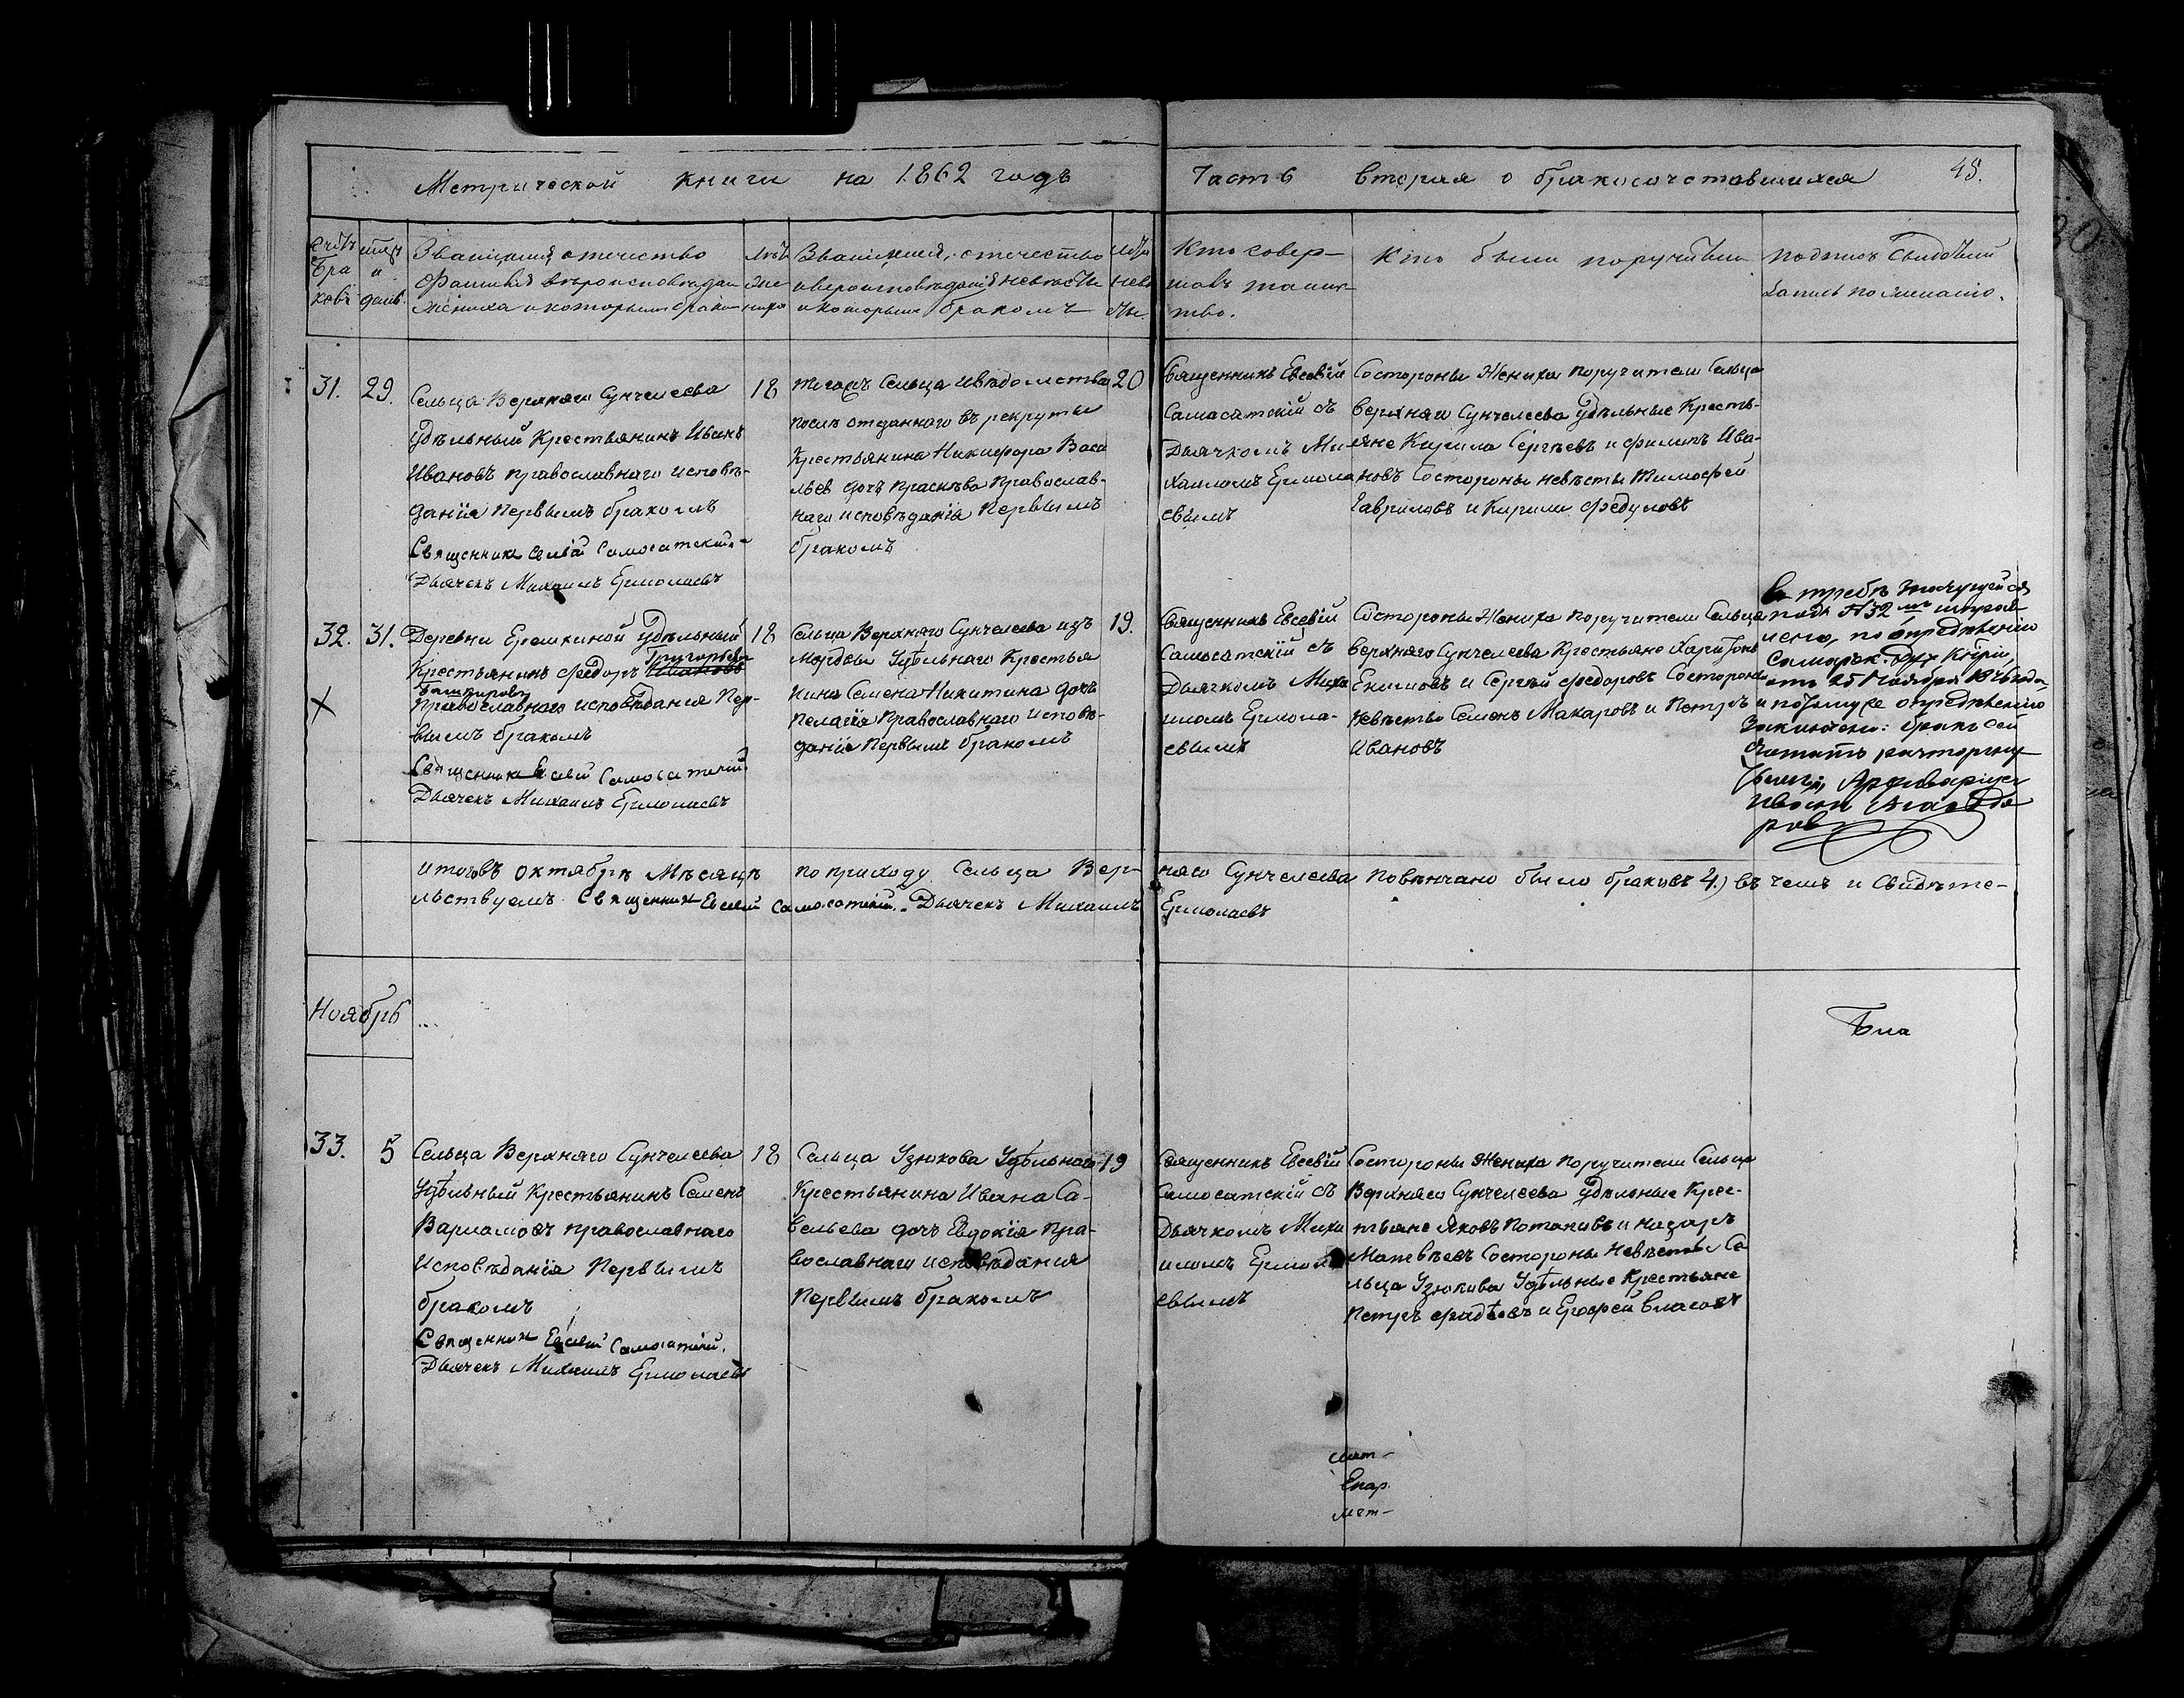 Метрической книги на 1862 годъ
Часть вторая о бракосочетавшихся 45.
Счётъ браковъ
и день
Званіе, имя, отечество
жениха и которымъ бракомъ
Лѣта жениха
Званіе, имя, отечество
и вероисповеданіе невѣсты
и которымъ бракомъ
Лѣта невѣсты
Кто совер-
шалъ таинс-
тво.
Кто были поручители
Подпись свидѣтелей
запись по желанію.
31. 29.
Сельца Верхняго Сунчелеева
Удѣльный Крестьянинъ Иванъ
Ивановъ православнаго исповѣ-
данія первымъ бракомъ
Священникъ Евсевій Самосатскій
Дьячекъ Михаилъ Ермолаевъ
18
Тогожъ Сельца и вѣдомства
послѣ отданнаго въ рекруты
Крестьянина Никифора Васи
льев дочь Прасковья Православ-
наго исповѣданія Первымъ
бракомъ
20
Священникъ Евсевій
Самосатскій съ
Дьячкомъ Ми-
хаиломъ Ермола
евымъ
Состороны Жениха поручители Сельца
Верхняго Сунчелеева Удѣльные Кресть-
яне Кирила Сергѣевъ и Филипъ Ива-
новъ Состороны невѣсты Тимофей
Гавриловъ и Кирила Федуловъ
32. 31.
Деревни Еремкиной Удѣльный
Крестьянинъ Федоръ Ивановъ
Григорьевъ
Православнаго исповѣданія Пер-
вымъ бракомъ
Священникъ Евсевій Самосатскій
Дьячекъ Михаилъ Ермолаевъ
18
Сельца Верхняго Сунчелеева изъ
мордвы Удѣльнаго Крестья
нина Семена Никитина дочь
Пелагія Православнаго Исповѣ-
данія Первымъ бракомъ
19.
Священникъ Евсевій
Самосатскій съ
Дьячкомъ Миха
иломъ Ермола-
евымъ
Состороны Жениха поручители Сельца
Верхняго Сунчелеева Крестьяне Харитонъ
Екимовъ и Сергѣй Федоровъ Состороны
Невѣсты Семенъ Макаровъ и Петръ
Ивановъ
подъ №32
по опредѣленію
Самарск. Дух
отъ 25 Ноября
и потому же опредѣленію
бракъ сей
Считать расторгну
Архиваріусъ
X
Итого въ октябрѣ Мѣсяцѣ по приходу Сельца Верх-
няго Сунчелеева Повѣнчано было браковъ 4.) въ чемъ и Свидѣте-
льствуемъ Священникъ Евсевій Самосатскій. Дьячекъ Михаилъ
Ермолаевъ
Ноябрь
33. 5
Сельца Верхняго Сунчелеева
Удѣльный Крестьянинъ Семенъ
Варламовъ православнаго
Исповѣданія Первымъ
бракомъ
Священникъ Евсевій Самосатскій.
Дьячекъ Михаилъ Ермолаевъ
18
Сельца Узюкова Удѣльнаго
Крестьянина Ивана Са-
вельева дочь Евдокія Пра-
вославнаго исповѣданія
Первымъ бракомъ
19
Священникъ Евсевій
Самосатскій съ
Дьячкомъ Миха
иломъ Ермола
евымъ
Состороны Жениха Поручители Сельца
Верхняго Сунчелеева Удѣльные Крес-
тьяне Яковъ Потаповъ и Назаръ
Матвѣевъ Состороны Невѣсты Се
льца Узюкова Удѣльные Крестьяне
Петръ Фадѣевъ и Ерофей Власовъ